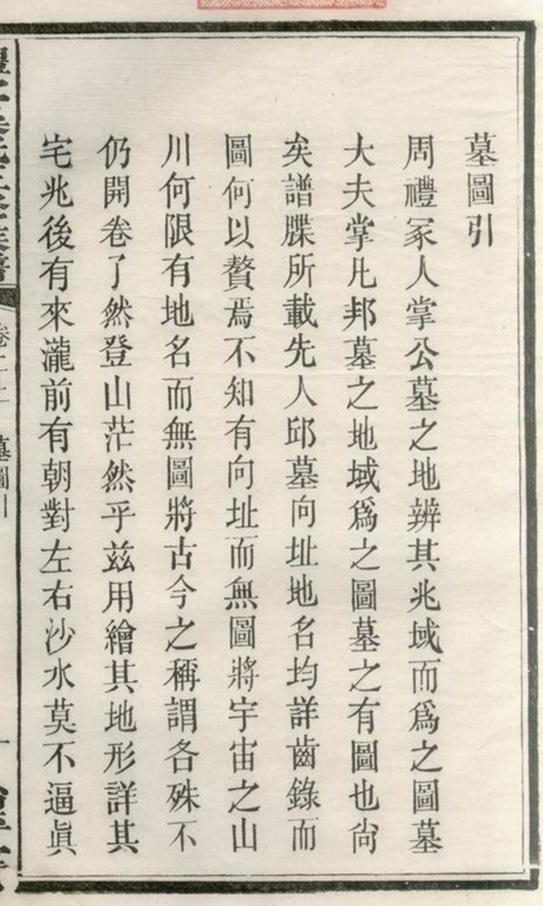 墓圖引
周禮冢人掌公墓之地辨其兆域而爲之圖墓
大夫掌凡邦墓之地域爲之圖墓之有圖也尙
矣譜牒所載先人邱墓向址地名均詳齒錄而
圖何以贅焉不知有向址而無圖將宇宙之山
川何限有地名而無圖將古今之稱謂各殊不
仍開卷了然登山茫然乎茲用繪其地形詳其
宅兆後有來瀧前有朝對左右沙水莫不逼眞
墓圖引